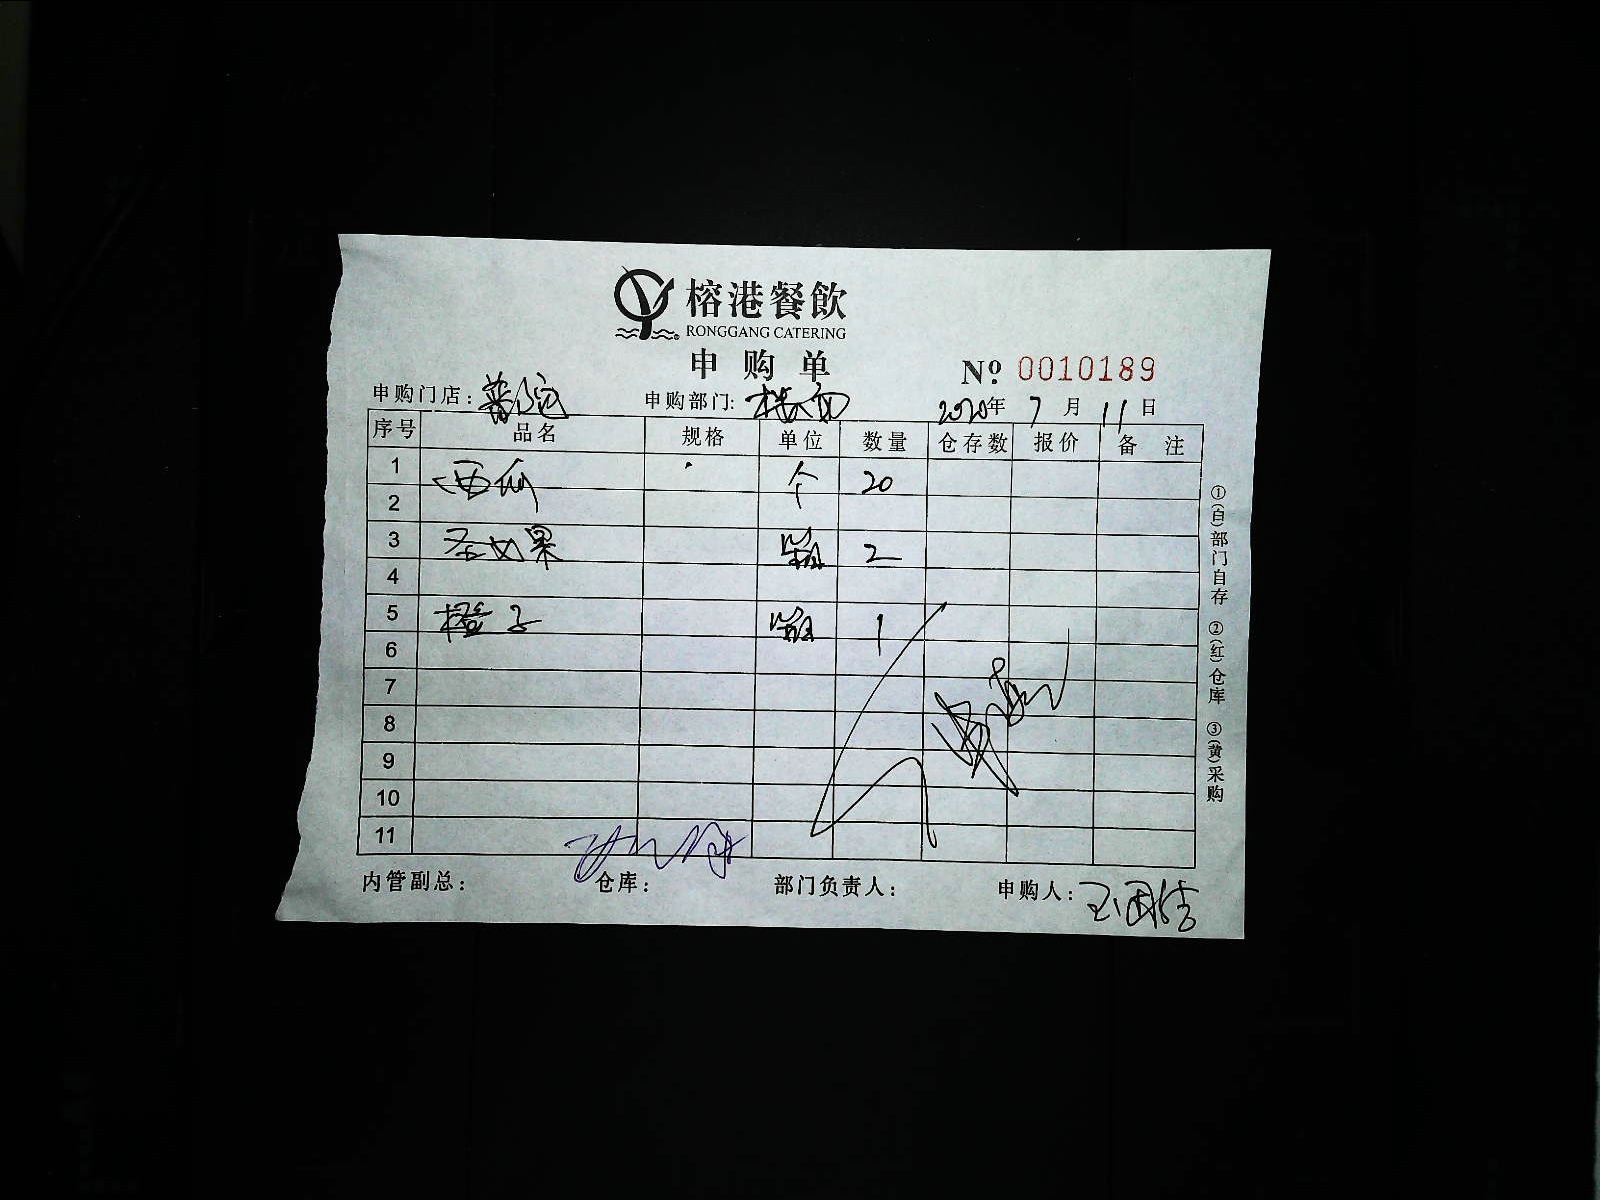 榕港餐飲
RONGGANG CATERING
申购单
Nº 0010189
申购门店: 申购部门: 楼面 2020年 7月 11日
序号 品名 规格 单位 数量 仓存数 报价 备注
1 西瓜 个 20
2
3 圣女果 箱 2
4
5 橙子 箱 1
6
7
8
9
10
11
内管副总: 仓库: 部门负责人: 申购人:
①(白)部门自存 ②(红)仓库 ③(黄)采购